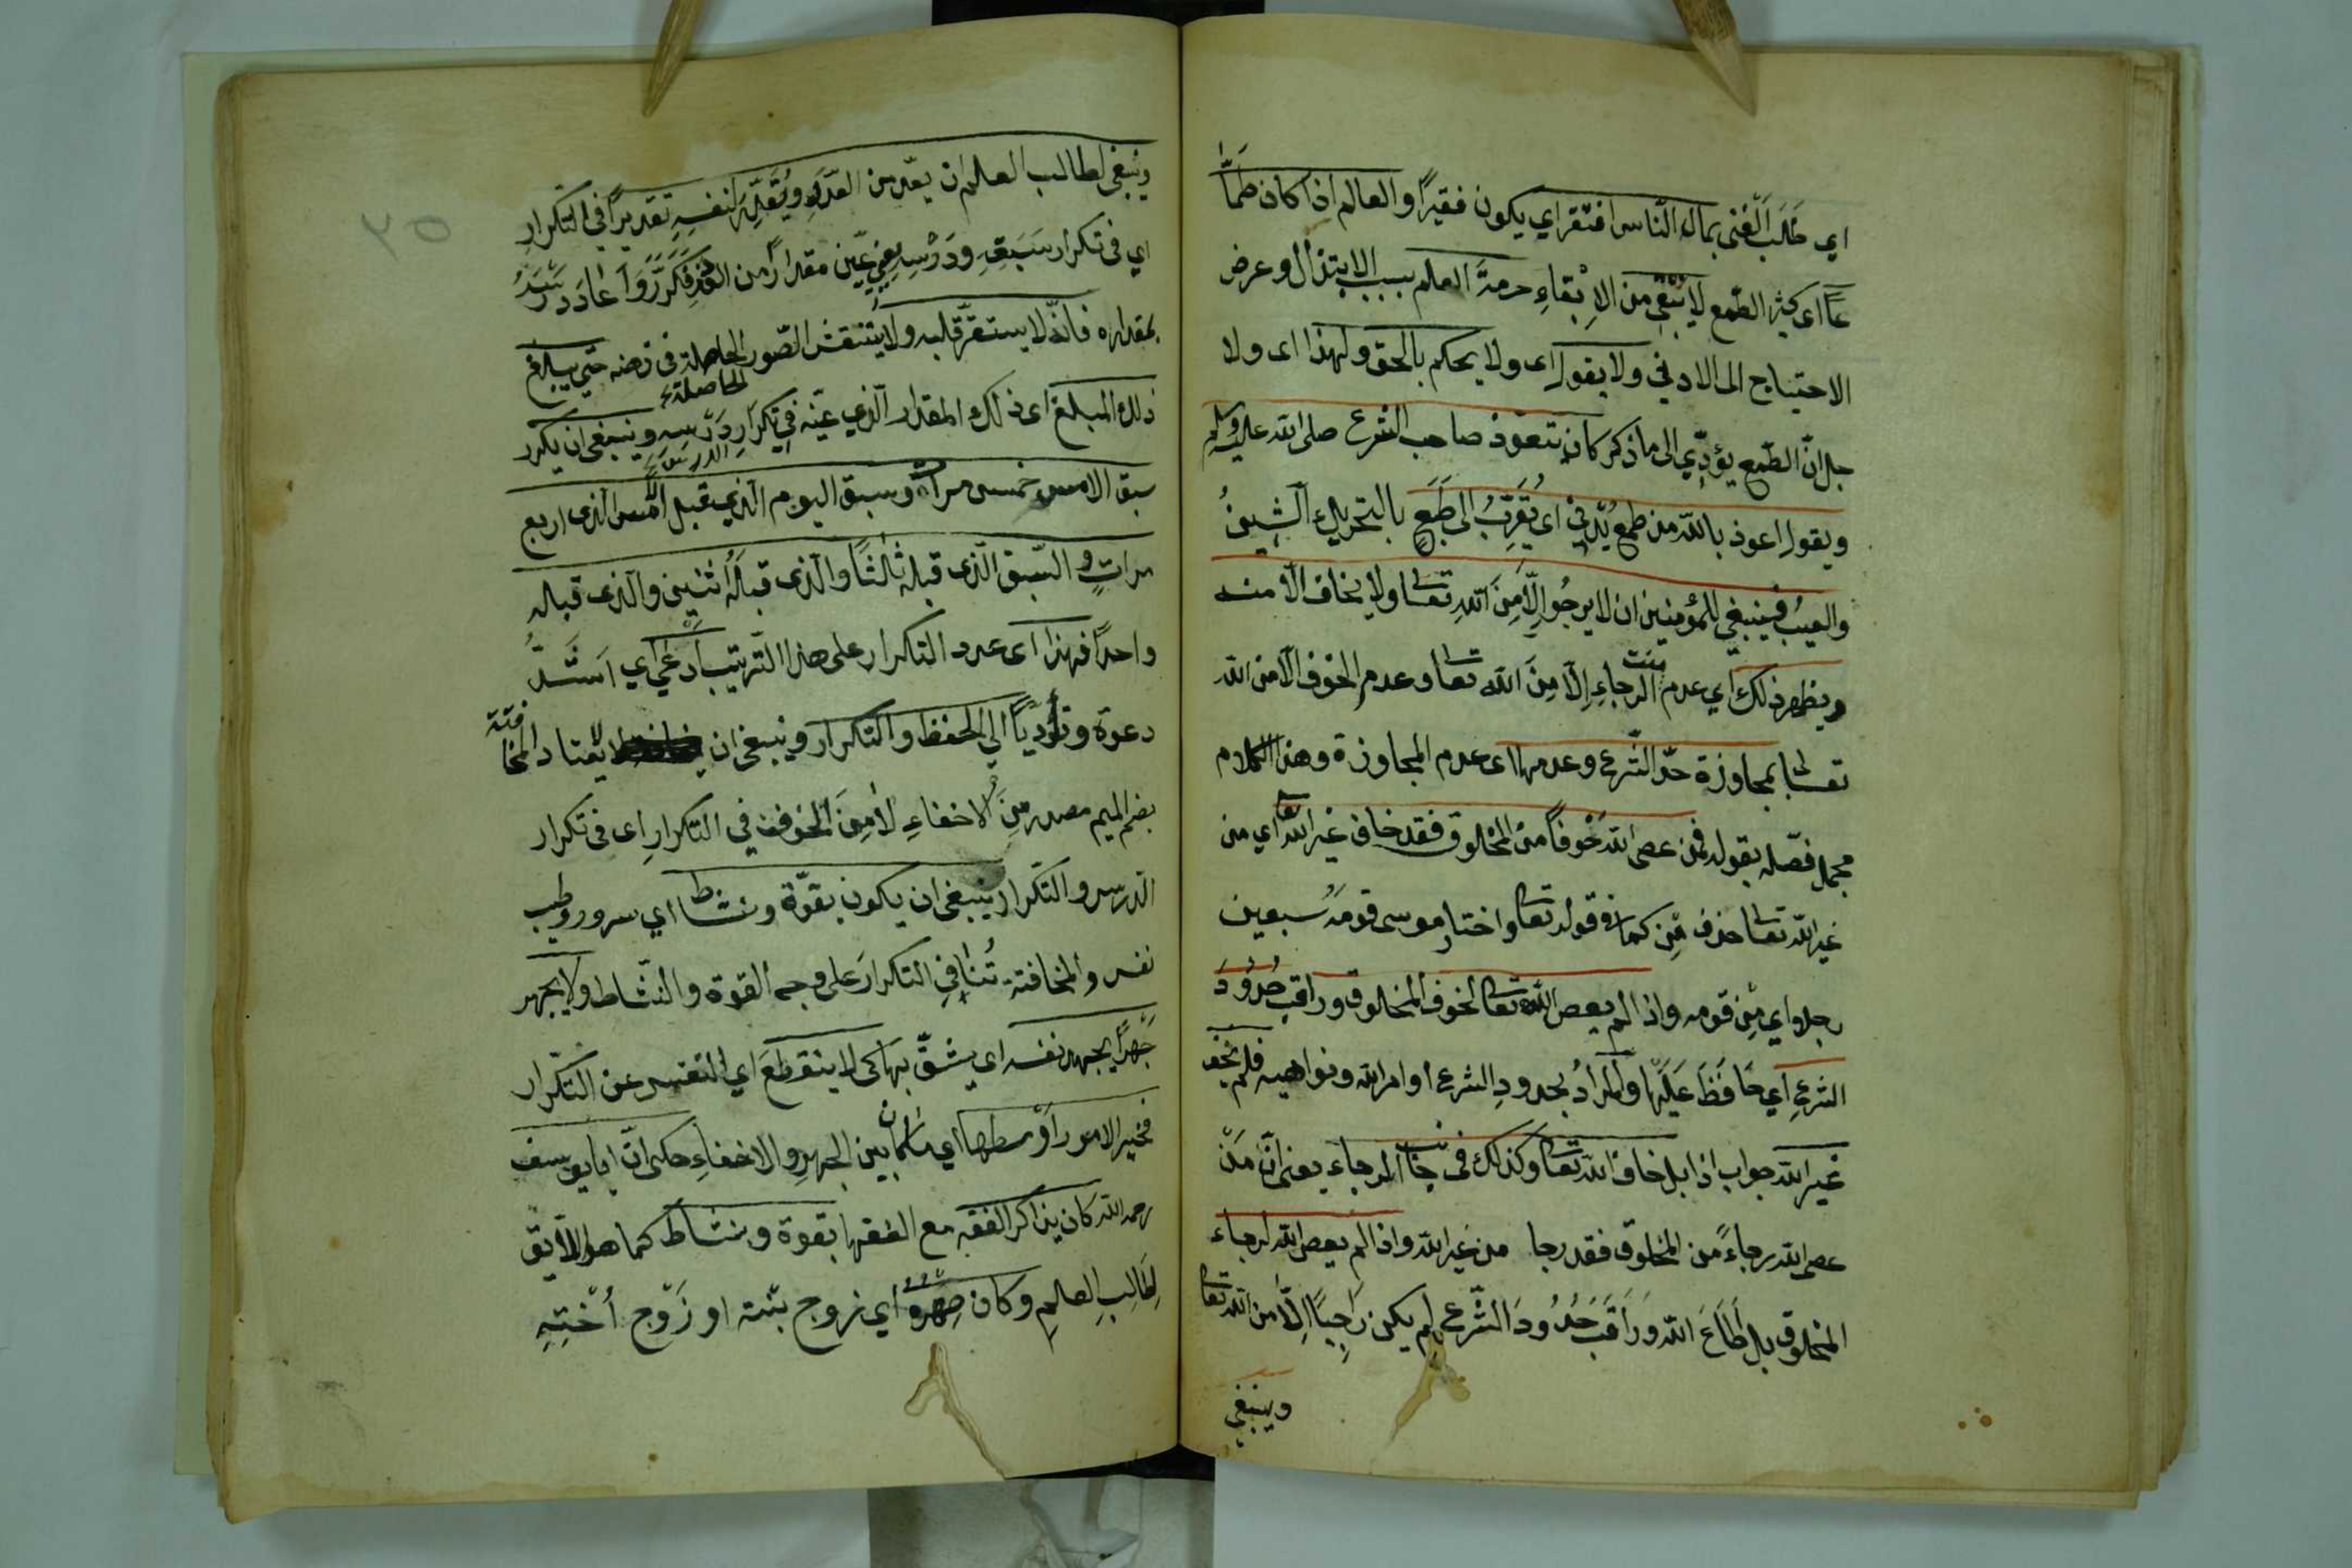 اي طَلَبَ الْغِنَى بمال النّاس افتقر اي يكون فقيرًا والعالم اذا كان طَمَّا
عًا اى كثير الطّمع لا يُبْقِى من الاِبْقاءِ حرمةَ العلم بسبب الابتذال وعرض
الاحتياج الى الادنى ولا يقول اى ولا يحكم بالحق ولهذا اى ولا
جل انّ الطّمع يؤدّي الى ما ذكر كان يتعوّذ صاحب الشرع صلى الله عليه وسلم
ويقول اعوذ بالله من طمع يُدْنِي اى يُقَرِّبُ الى طَبَعٍ بالتحريك الشينُ
والعيبُ فينبغي للمؤمنين ان لا يرجُوا اِلَّا مِنَ اللهِ تعالى ولا يخاف الّا منه
ويظهر ذلك اي عدم الرجاءِ اِلّا مِنَ الله تعالى وعدم الخوف الّا من الله
تعالى بمجاوزة حدّ الشّرع وعدمها اى عدم المجاوزة وهذا الكلام
مجمل فصّله بقوله فمن عصى اللهَ خوفًا من المخلوق فقد خاف غير الله تعالى اي من
غير الله تعالى حذف مِن كما في قوله تعالى واختار موسى قومَهُ سبعين
رجلا اي مِن قومه واذا لم يعص الله تعالى لخوف المخلوق وراقب حُدُودَ
الشرعِ اي حَافَظَ عَلَيْها والمرادُ بحدودِ الشرع اوامر الله ونواهيه فلم يخف
غير الله جواب اذا بل خاف الله تعالى وكذلك في جانب الرجاء يعنى انّ مَنْ
عصى الله رجاءً من المخلوق فقد رجا من غير الله واذا لم يعص الله لرجاء
المخلوق بل اَطَاعَ الله وَرَاقَبَ حُدُودَ الشّرع لم يكن رَاجِيًا اِلَّا من الله تعالى
وينبغي
٣٥
وينبغي لطالب العلم ان يعدّ من العدّ ويُقَدِّرَ لنفسِهِ تقديرًا في التكرار
اي في تكرار سَبَقِهِ ودَرْسِهِ يعنى يعيّن مقدارًا من القدر فكرّر واعاد درسه
بمقداره فانّه لا يستقرّ قلبه ولا يتنقش الصّور الحاصلة في ذهنه حتّى يبلغ
الحاصلة
ذلك المبلغ اى ذلك المقدار الّذي عيّنه في تكرَارِ دَرْسِهِ وينبغى ان يكرّر
سبق الامس خمس مرات وسبق اليوم الّذي قبل الامس الّذى اربع
مراتٍ والسّبق الّذى قبله ثالثًا والّذى قبلَهُ اثنين والّذى قبله
واحدًا فهذا اى عدد التكرار على هذا التّرتيب اَدْعى اي اَشَدُّ
دعوة وتأديًا الى الحفظ والتكرار وينبغى ان لا يعتاد المخافتة
بضم الميم مصدر مِنَ الاخفاءِ لا مِنَ الخوف في التكرارِ اى في تكرار
الدّرس والتّكرار ينبغى ان يكون بقوّة ونشاط اي سرور وطيب
نفس والمخافتة تُنَافِي التكرارَ على وجه القوة والنّشاط ولا يجهر
جَهْرًا يجهد نفسه اي يشقّ بها كى لا ينقطعَ اي النفس عن التكرار
فخير الامور اَوْسطها اي ما كان بين الجهرِ والاخفاءِ حكى انّ ابا يوسف
رحمه الله كان يذاكر الفقه مع الفقها بقوة ونشاط كما هو اللّايق
لِطَالِبِ العلمِ وكان صِهْرُهُ اي زوج بنته او زَوْج اُخْتِهِ